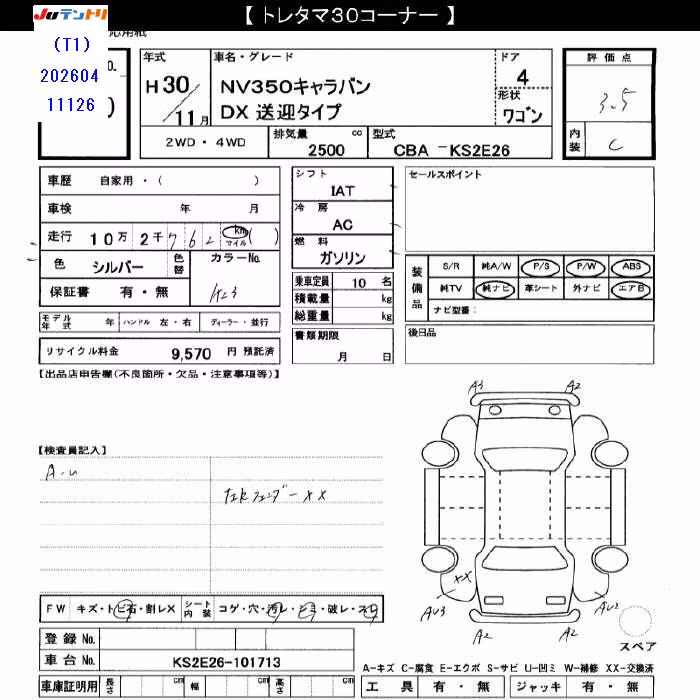 【 トレタマ30コーナー 】
JUテントリ
応用紙
(T1)
202604
11126
No.
年式
H30/11月
車名・グレード
NV350キャラバン
DX 送迎タイプ
ドア
4
形状
ワゴン
評価点
3.5
内装
C
2WD・4WD
排気量
2500 cc
型式
CBA -KS2E26
車歴 自家用・( )
車検 年 月
走行 10万 2千7 6 2 km マイル ( )
色 シルバー 色替 カラーNo.
保証書 有・無 K23
シフト
IAT
冷房
AC
燃料
ガソリン
乗車定員 10 名
積載量 kg
総重量 kg
セールスポイント
装備品
S/R 純A/W P/S P/W ABS
純TV 純ナビ 革シート 外ナビ エアB
ナビ型番:
モデル年式 年 ハンドル 左・右 ディーラー・並行
リサイクル料金 9,570 円 預託済
書類期限
月 日
後日品
【出品店申告欄(不良箇所・欠品・注意事項等)】
A3 A2
【検査員記入】
A・U
左Rフェンダー XX
XX
AU3 AU2
A2 A2
スペア
FW キズ・トビ石・割レX シート内装 コゲ・穴・汚レ・シミ・破レ・スレ
登録 No.
車台 No. KS2E26-101713
車庫証明用 長さ cm 幅 cm 高さ cm
A-キズ C-腐食 E-エクボ S-サビ U-凹ミ W-補修 XX-交換済
工具 有・無 ジャッキ 有・無